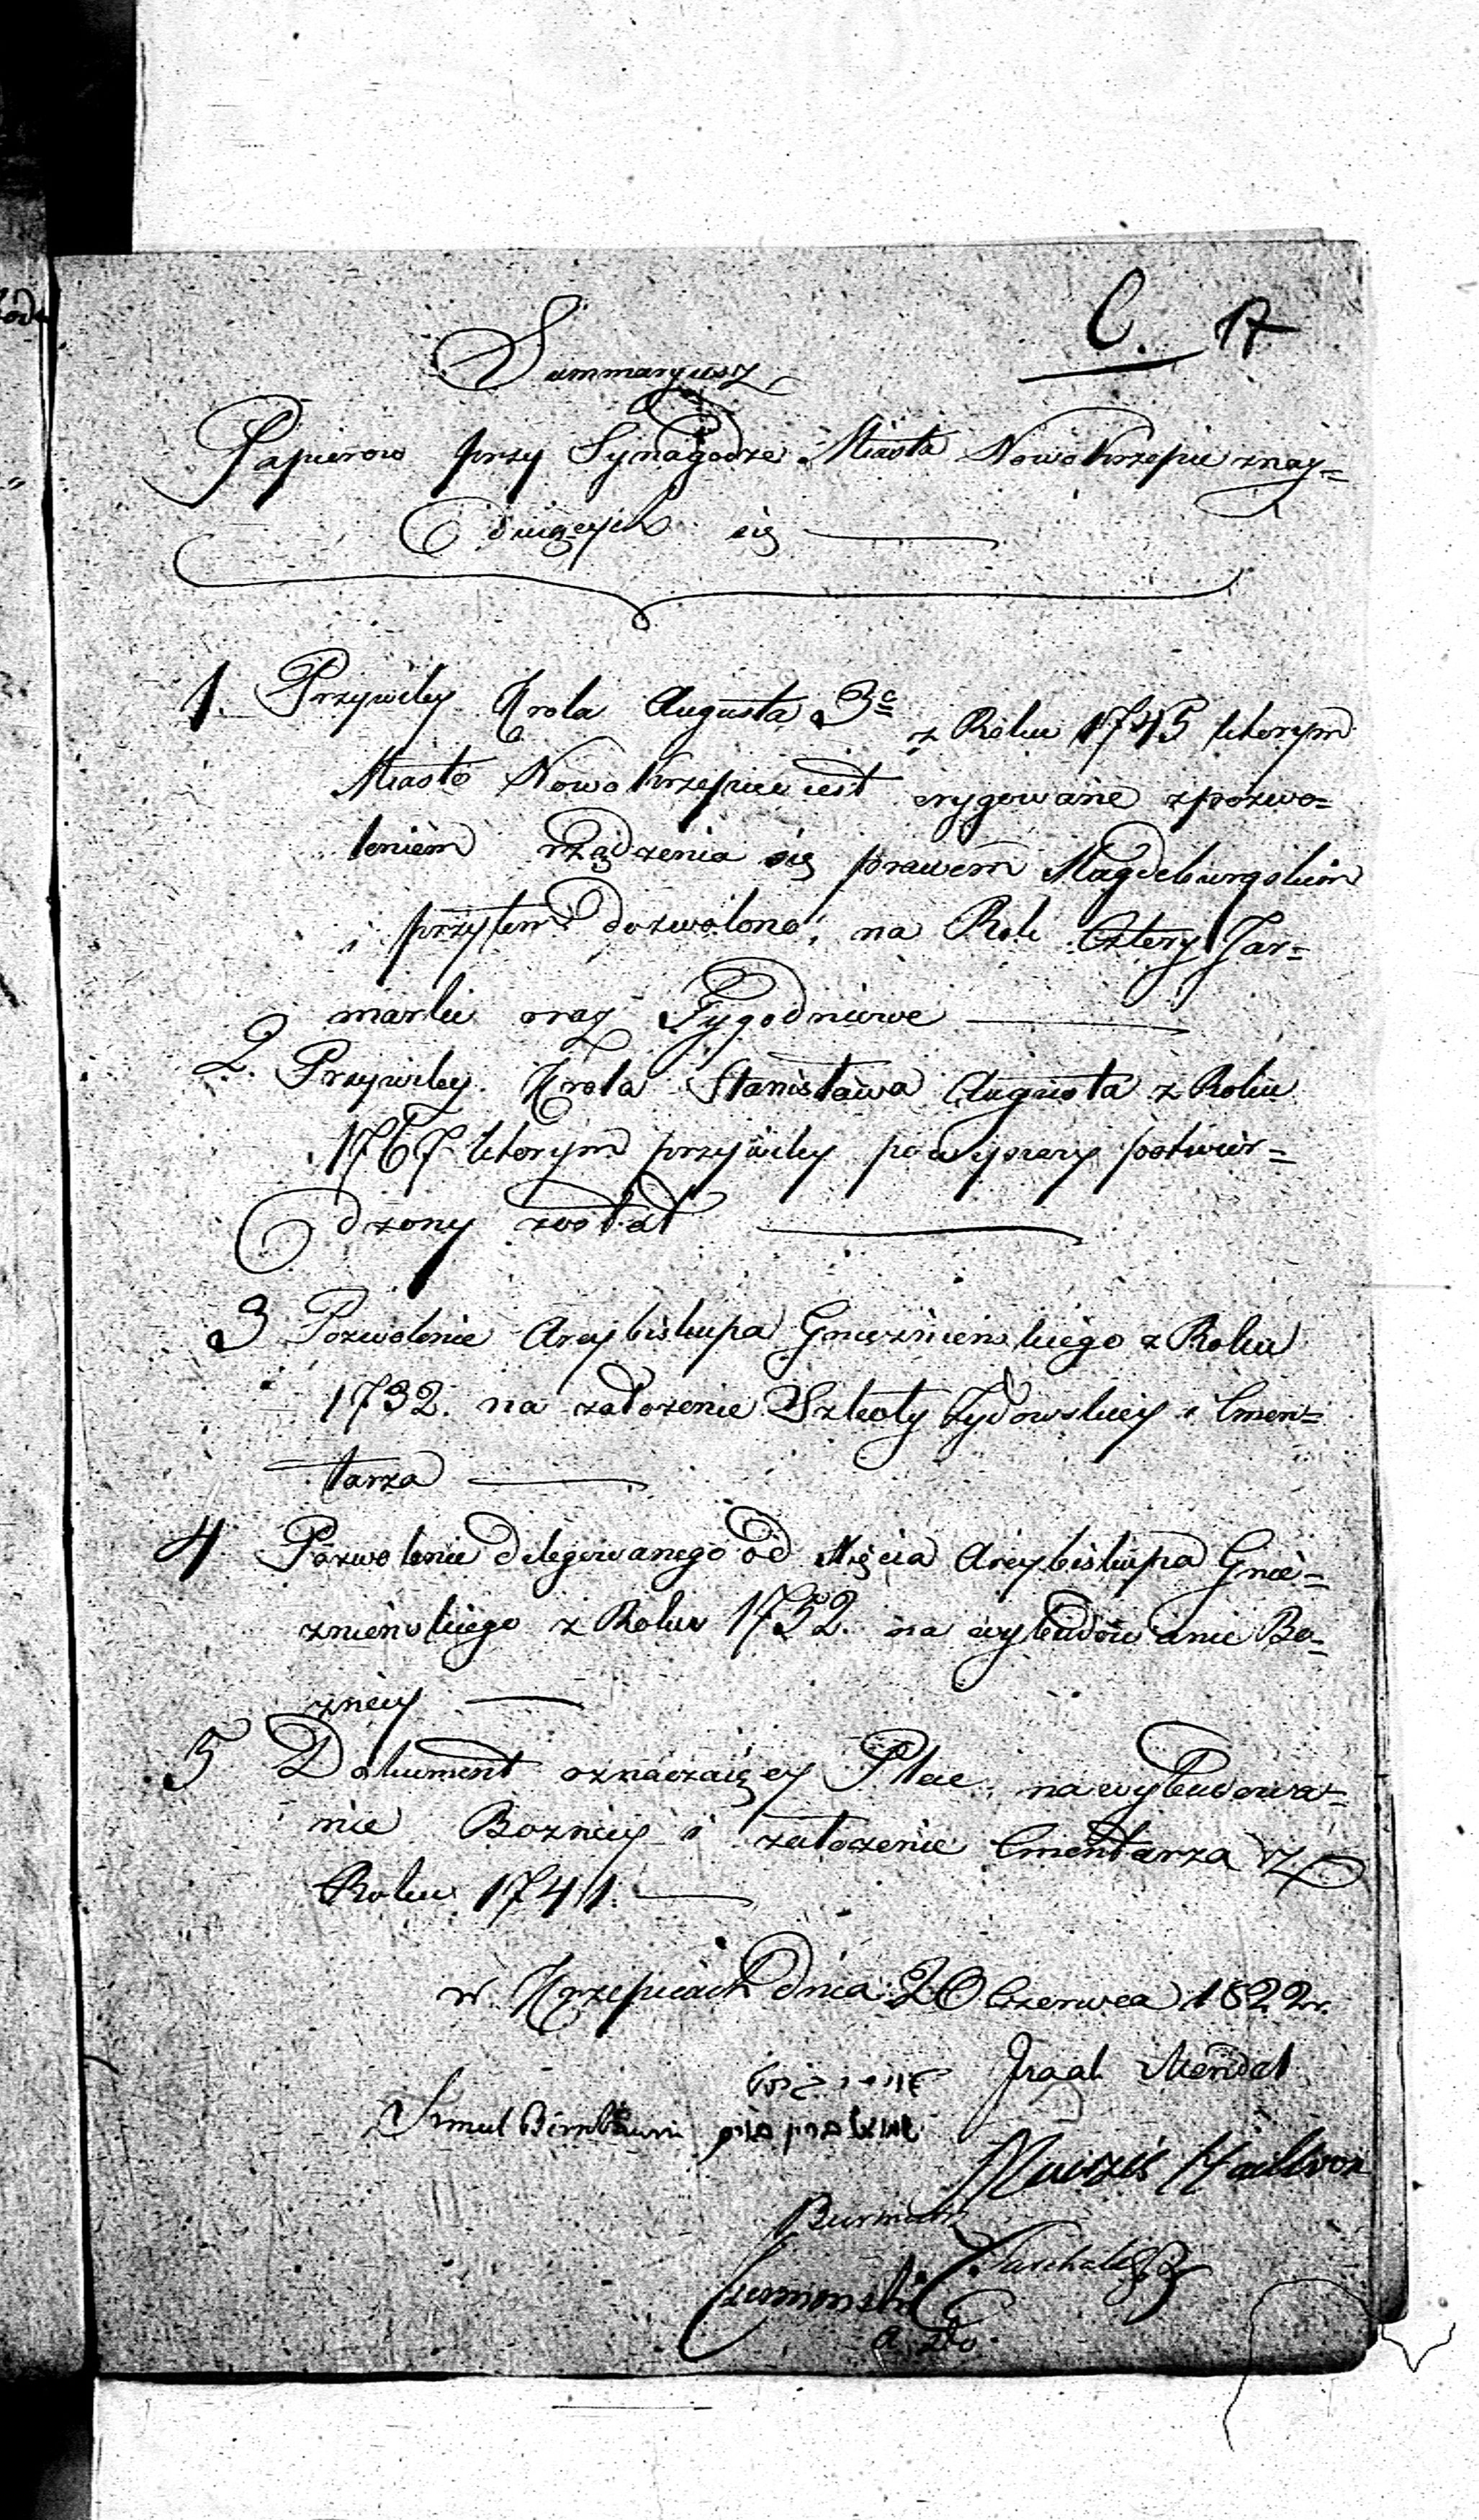 C. 17
Summaryusz
Papierow przy Synagodze Miasta Nowokrzepic znay=
duiących się
1. Przywiley Krola Augusta 3º z Roku 1745 ktorym
Miasto Nowokrzepice iest erygowane z pozwo=
leniem rządzenia się prawem Magdeburgskim
i przytem dozwolono, na Rok Cztery Jar=
marki oraz Tygodniowe
2. Przywiley Krola Stanisława Augusta z Roku
1767 ktorym przywiley powyszszy potwier=
dzony został
3 Pozwolenie Arcybiskupa Gnieznienskiego z Roku
1732. na założenie Szkoły Żydowskiey i Cmen=
tarza
4 Pozwolenie delegowanego od Xięcia Arcybiskupa Gnie=
znienskiego z Roku 1752. na wybudowanie Bo=
znicy
5 Dokument oznaczaiący Plac na wybudowa=
nie Boznicy i założenie Cmentarza z
Roku 1741.
w Krzepicach dnia 20 Czerwca 1822 r.
Izrael Mendel
Szmul Birnbaum שמואל בירנבוים
Burmistrz